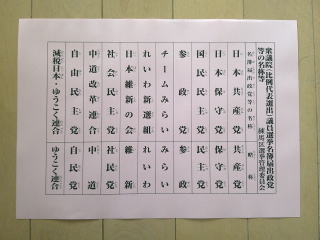 衆議院(比例代表選出)議員選挙名簿届出政党
等の名称等
練馬区選挙管理委員会
名簿届出政党等の名称 略称
日本共産党 共産党
日本保守党 保守党
国民民主党 民主党
参政党 参政党
チームみらい みらい
れいわ新選組 れいわ
日本維新の会 維新
社会民主党 社民党
中道改革連合 中道
自由民主党 自民党
減税日本・ゆうこく連合 ゆうこく連合